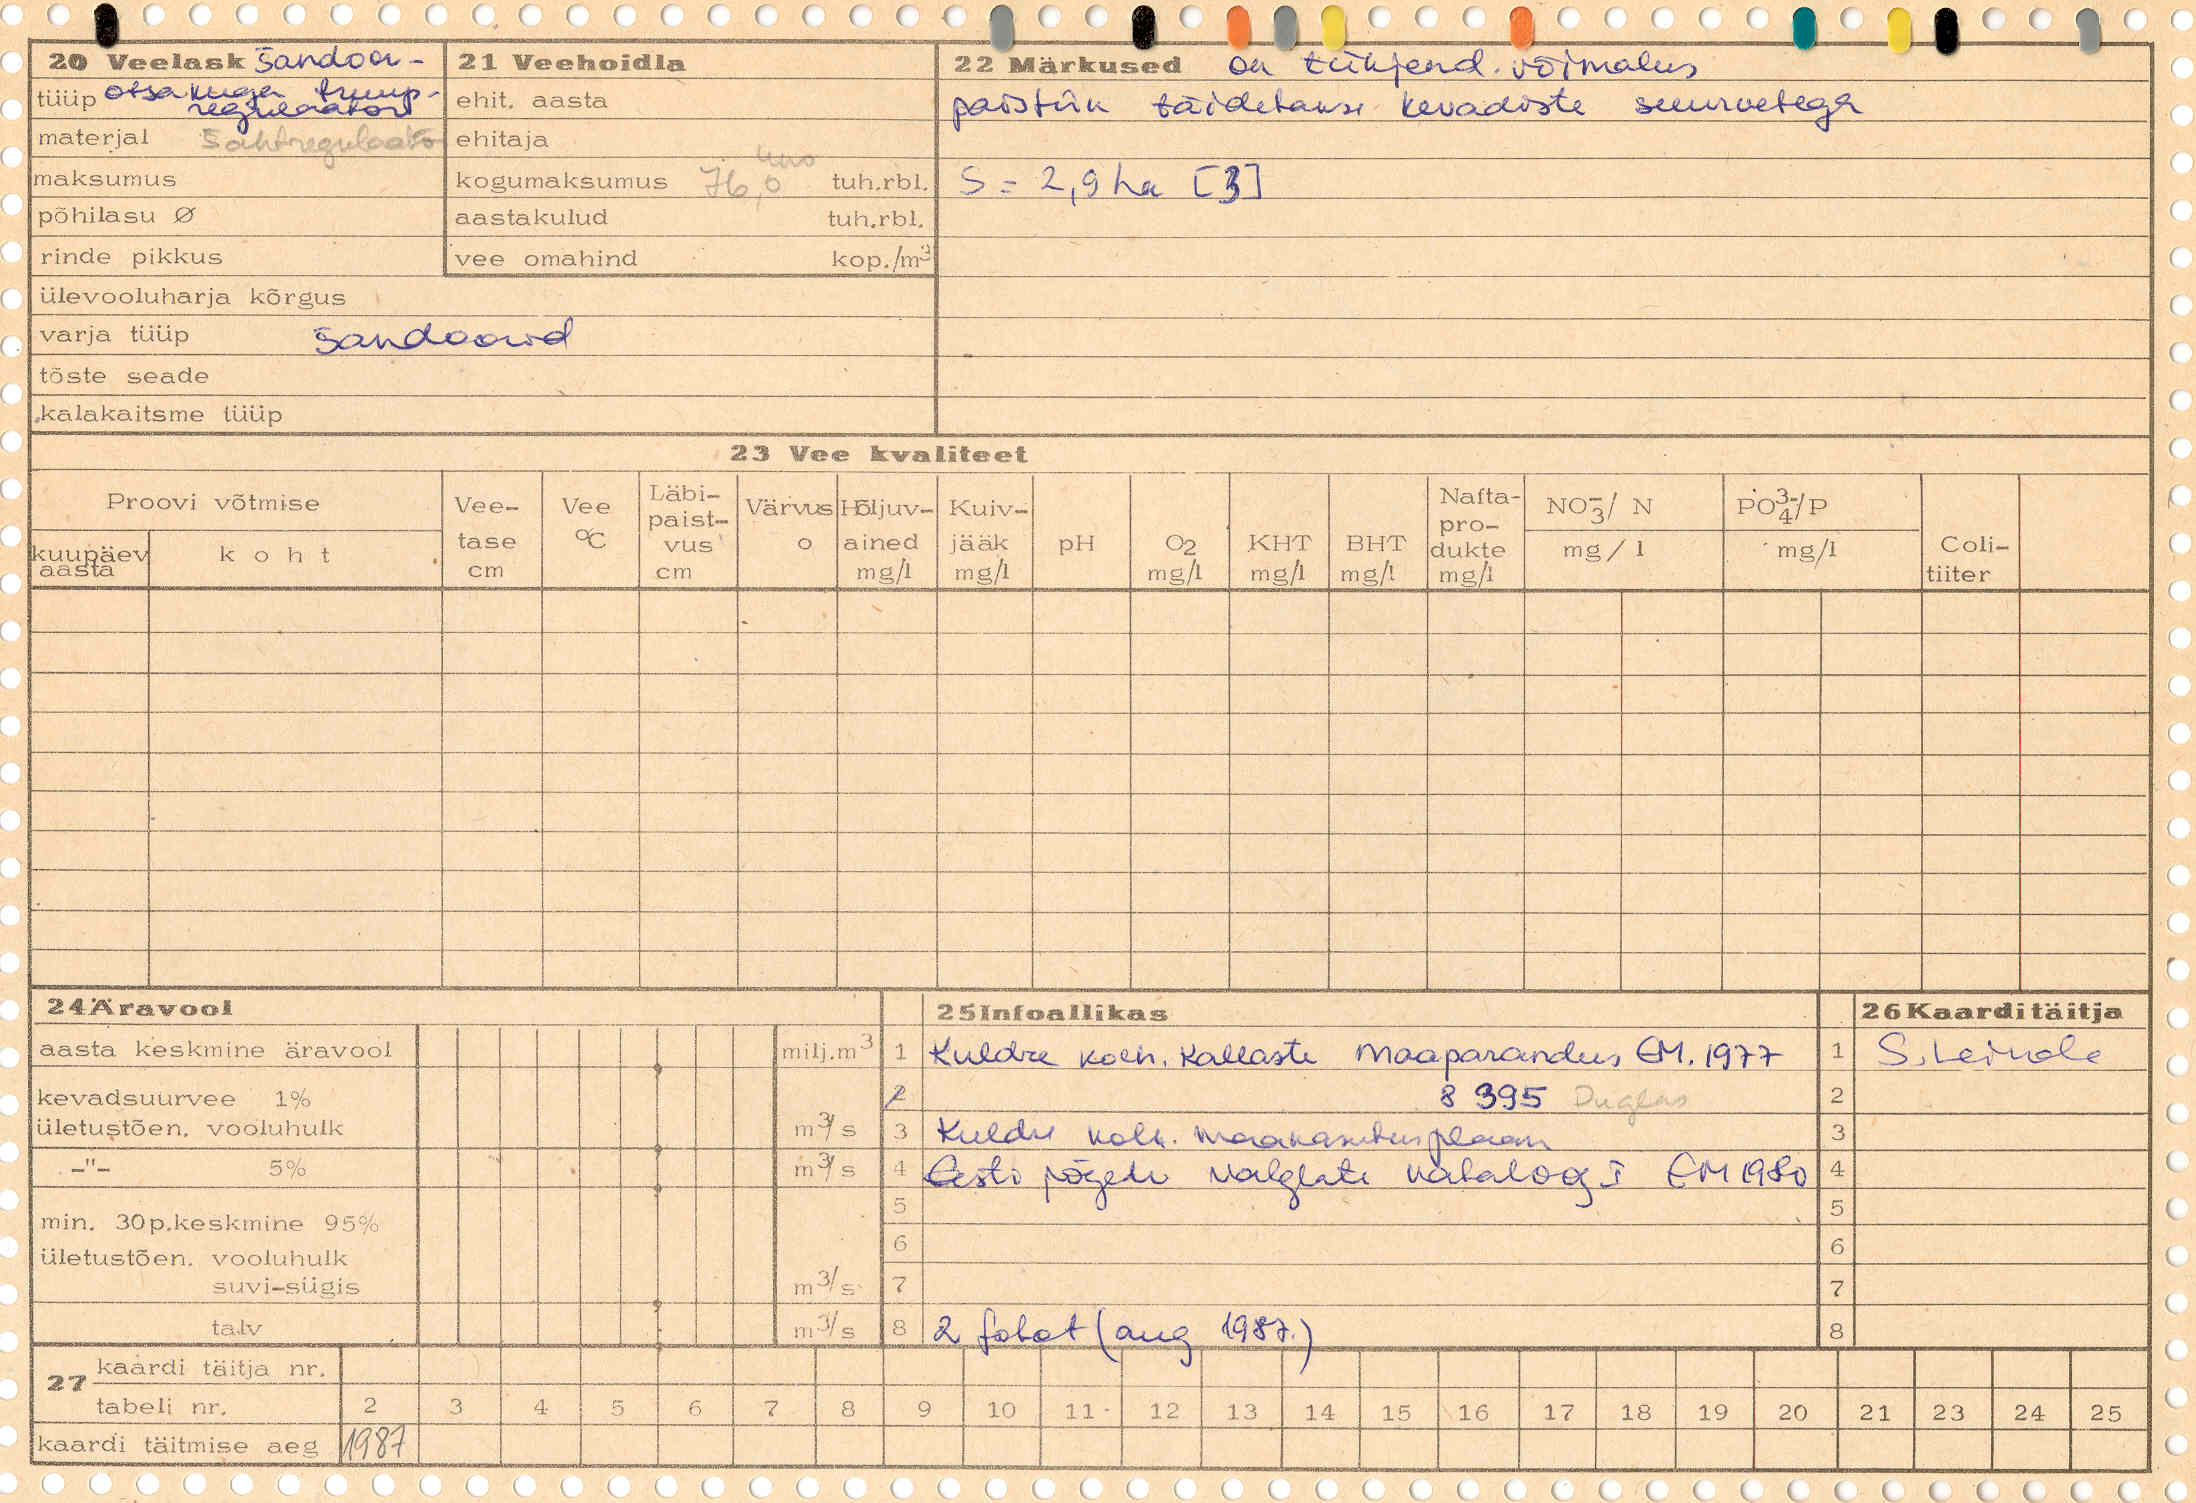 20 Veelask šandoor-
tüüp otsakuga truup-
regulaator
materjal šahtregulaator
maksumus
põhilasu Ø
rinde pikkus
ülevooluharja kõrgus
varja tüüp šandoorid
tõste seade
kalakaitsme tüüp
21 Veehoidla
ehit. aasta
ehitaja
kogumaksumus 76,0 tuh.rbl.
aastakulud tuh.rbl.
vee omahind kop./m³
22 Märkused on tühjend. võimalus
paistiik täidetakse kevadiste suurvetega
S = 2,9 ha [3]
23 Vee kvaliteet
Proovi võtmise
kuupäev aasta
koht
Vee-tase cm
Vee °C
Läbi-paist-vus cm
Värvus o
Hõljuv-ained mg/l
Kuiv-jääk mg/l
pH
O2 mg/l
KHT mg/l
BHT mg/l
Nafta-pro-dukte mg/l
NO₃⁻/ N mg/l
PO₄³⁻/P mg/l
Coli-tiiter
24 Äravool
aasta keskmine äravool milj.m³
kevadsuurvee 1%
ületustõen. vooluhulk m³/s
-"- 5% m³/s
min. 30p.keskmine 95%
ületustõen. vooluhulk
suvi-sügis m³/s
talv m³/s
25 Infoallikas
1 Kuldre kolh. Kallaste maaparandus EM. 1977
2 8 395 Duglas
3 Kuldre kolh. maakasutusplaan
4 Eesti jõgede valglate kataloog I EM 1980
5
6
7
8 2 fotot (aug 1987.)
26 Kaarditäitja
1 S. Leinola
2
3
4
5
6
7
8
27 kaardi täitja nr.
tabeli nr. 2 3 4 5 6 7 8 9 10 11 12 13 14 15 16 17 18 19 20 21 23 24 25
kaardi täitmise aeg 1987